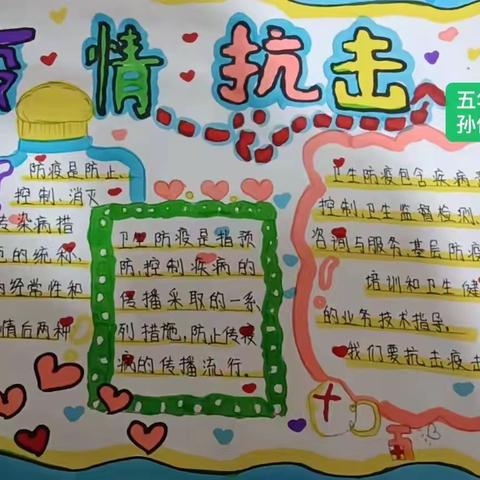 情抗击
五
孙
防疫是防止、
控制、消灭
传染病措
的统称,
经常性和
情后两种
卫生防疫是指预
防,控制疾病的
传播采取的一系
列措施,防止传染
病的传播流行。
卫生防疫包含疾病
控制、卫生监督检测、
咨询与服务、基层防疫
培训和卫生健
的业务技术指导。
我们要抗击疫